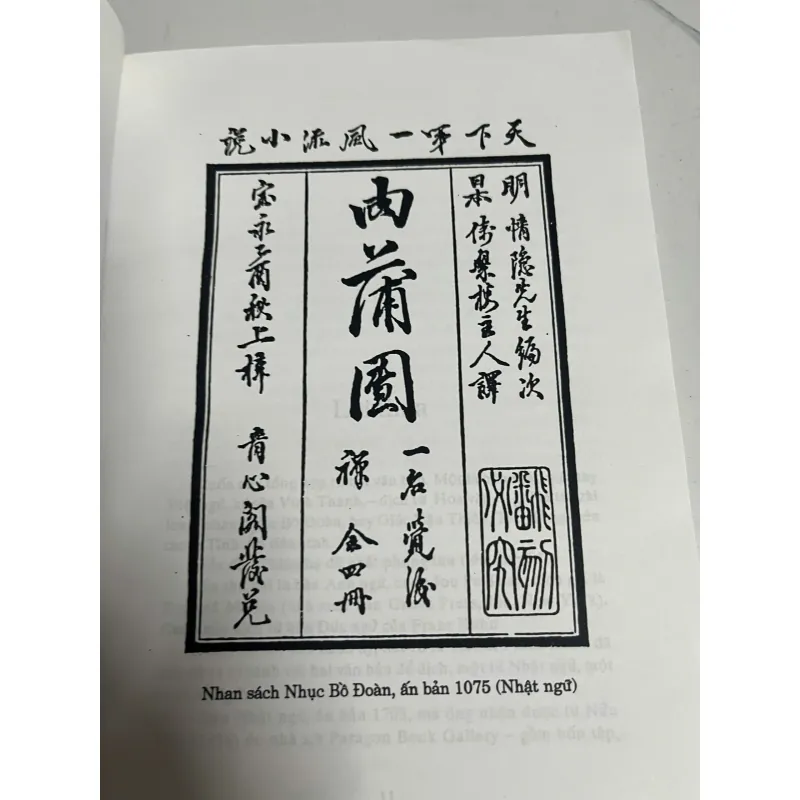 天下第一風流小說
明情隱先生編次
日本倚翠樓主人譯
翻刻必究
肉蒲團
一名覺後
禪 全四冊
宝永乙酉秋上梓 青心閣發兌
Nhan sách Nhục Bồ Đoàn, ấn bản 1075 (Nhật ngữ)